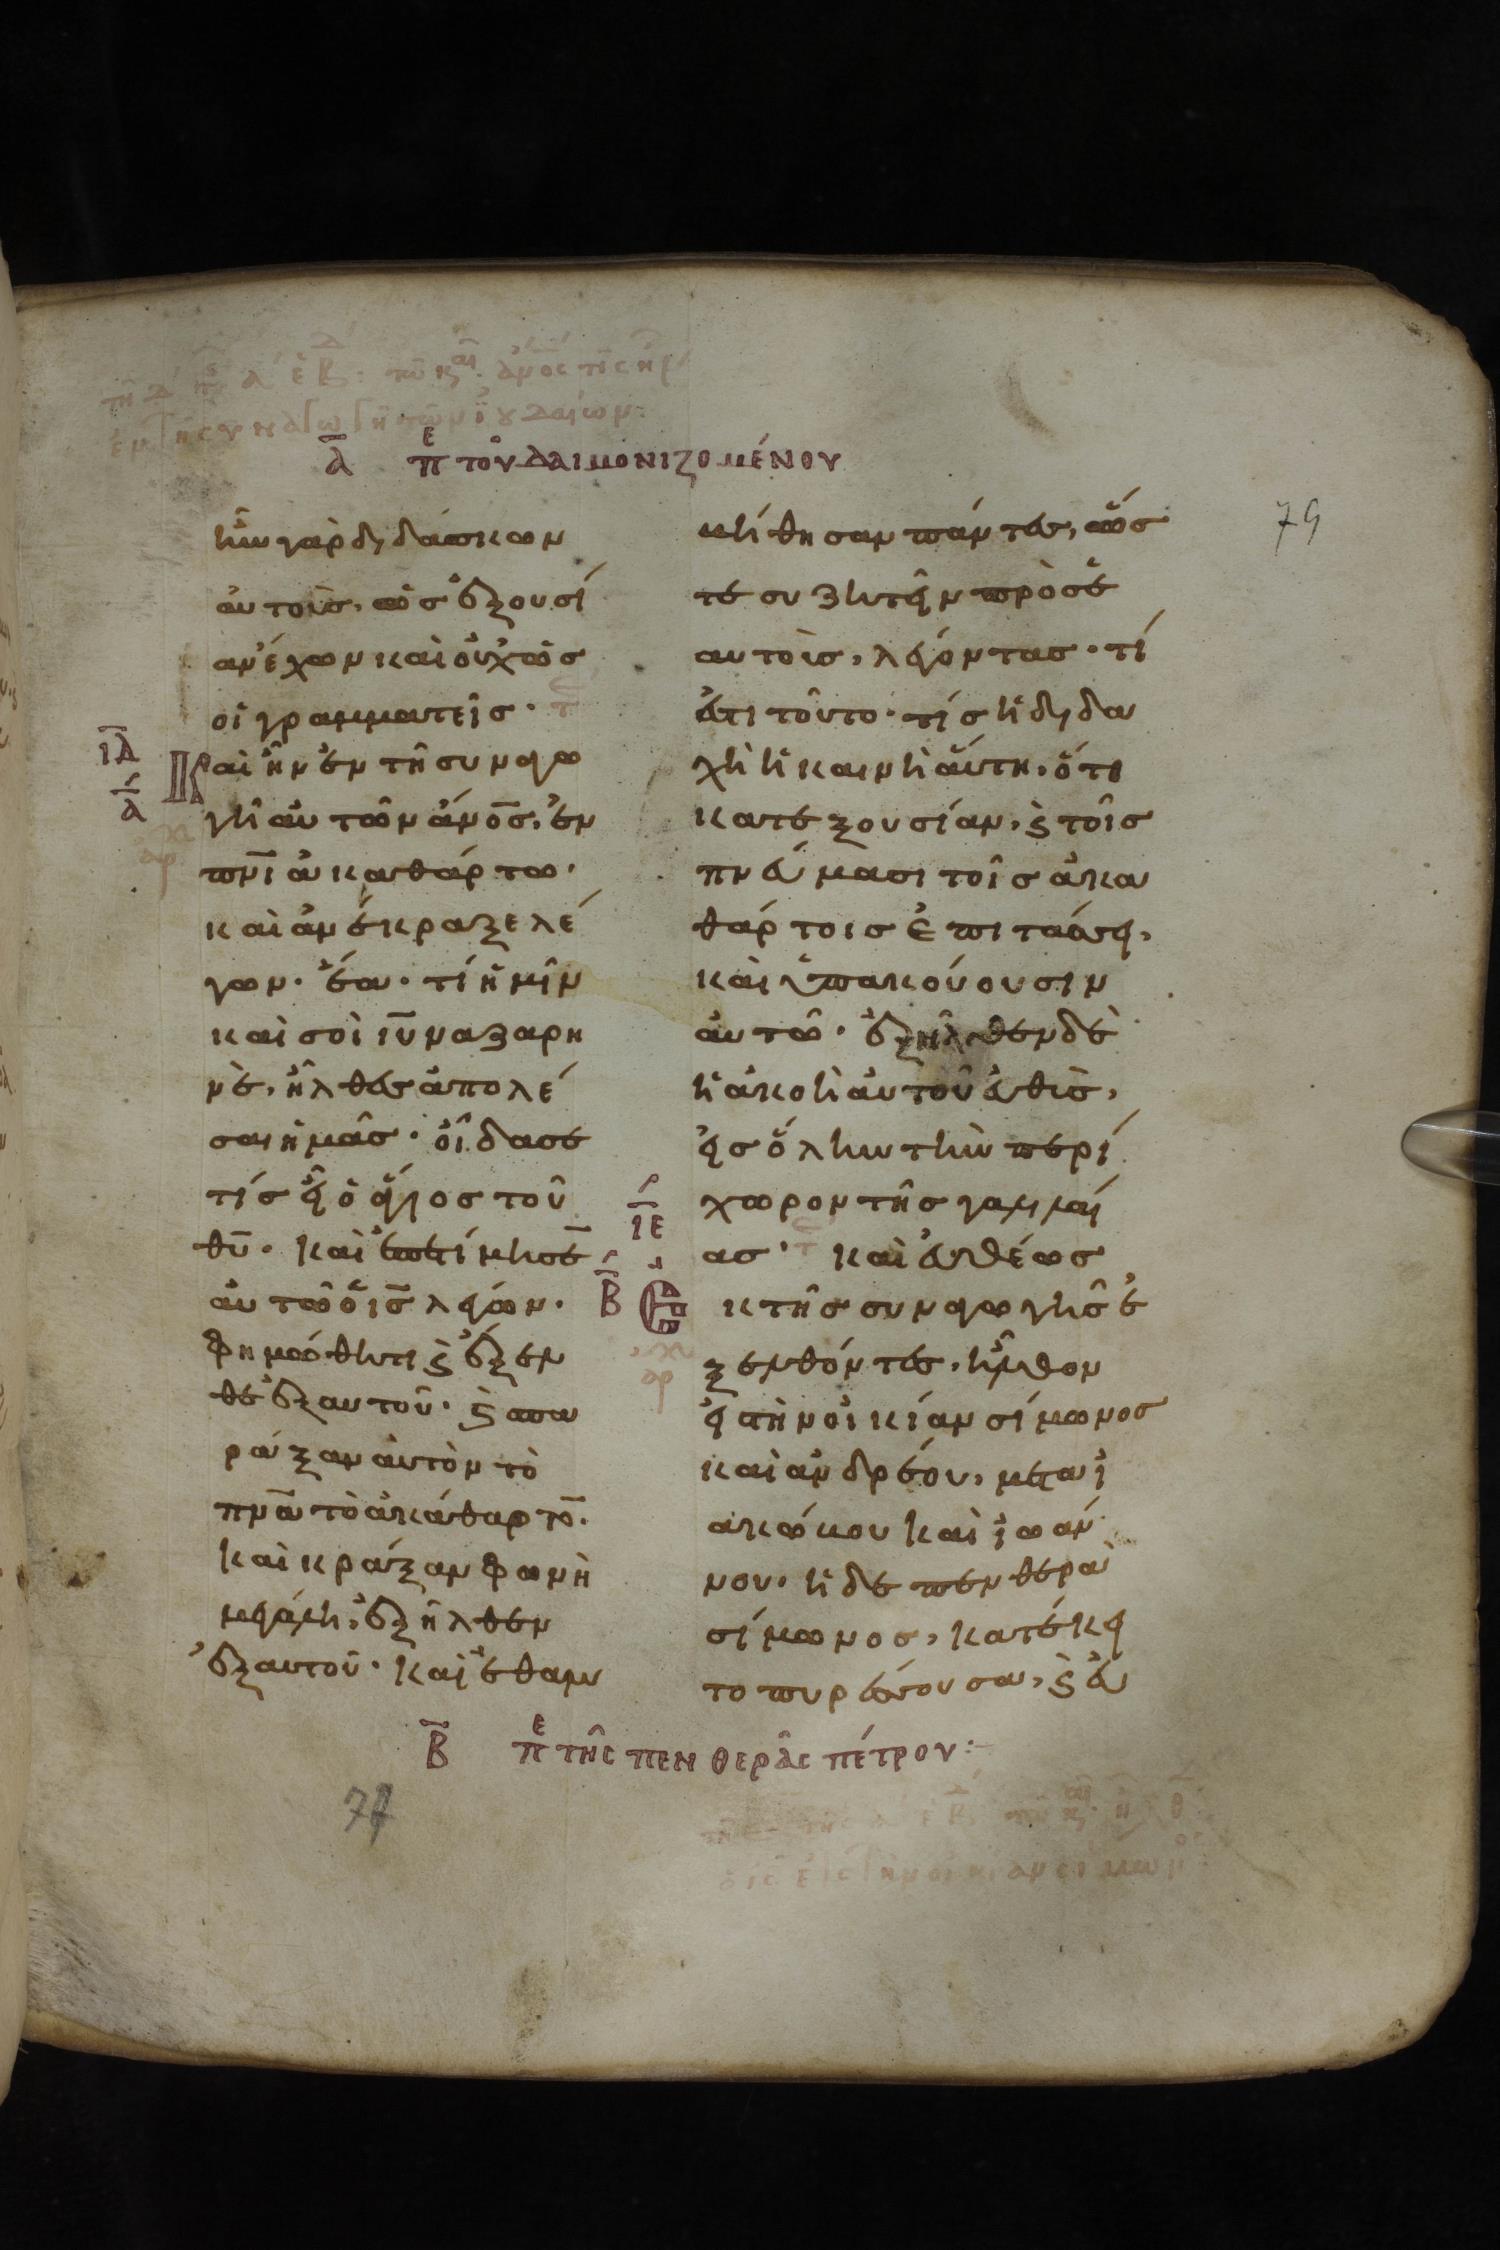 α̅ π̅ε τοῦ δαιμονιζομένου
79
ἦν γὰρ διδάσκων
αὐτοὺς, ὡς ἐξουσί
αν ἔχων καὶ οὐχ ὡς
οἱ γραμματεῖς·
ΙΔ̅
Α̅
Καὶ ἦν ἐν τῆ συναγω
γῆ αὐτῶν ἄνο̅ς, ἐν
πν̅ι ἀκαθάρτω·
καὶ ἀνέκραξε λέ
γων· ἔα· τί ἡμῖν
καὶ σοὶ ι̅υ̅ ναζαρη
νὲ, ἦλθες ἀπολέ
σαι ἡμᾶς· οἶδα σε
τίς εἶ ὁ ἅγιος τοῦ
θ̅υ̅· καὶ ἐπετίμησε̅
αὐτῶ ὁ ι̅ς̅ λέγων·
φημώθητι ϗ ἔξελ
θε ἐξ αὐτοῦ· ϗ σπα
ράξαν αὐτὸν τὸ
πν̅α τὸ ἀκάθαρτο̅·
καὶ κράξαν φωνὴ
μεγάλη, ἐξῆλθεν
ἐξ αυτοῦ· καὶ ἐθαμ
βήθησαν πάντες, ὥσ
τε συζητεῖν πρὸς ἑ
αυτοὺς, λέγοντας· τί
ἐστι τοῦτο· τίς ἡ διδα
χὴ ἡ καινὴ αὕτη, ὅτι
κατεξουσίαν, ϗ τοῖς
πνεύμασι τοῖς ἀκα
θάρτοις ἐπιτάσσει,
καὶ ὑπακούουσιν
αὐτῶ· ἐξῆλθεν δὲ
ἡ ἀκοὴ αὐτοῦ εὐθὺς,
εἰς ὅλην τὴν περί
χωρον τῆς γαλιλαί
ας· καὶ εὐθέως
ΙΕ̅
Β̅
Ἐκ τῆς συναγωγῆς ἐ
ξελθόντες, ἦλθον
εἰς τὴν οἰκίαν σίμωνος
καὶ ἀνδρέου, μετα ἰ
ακώβου καὶ ἰωάν
νου· ἡ δε πενθερὰ
σίμωνος, κατέκει
το πυρέσσουσα, ϗ εὐ
Β̅ π̅ε τῆς πενθερᾶς πέτρου: